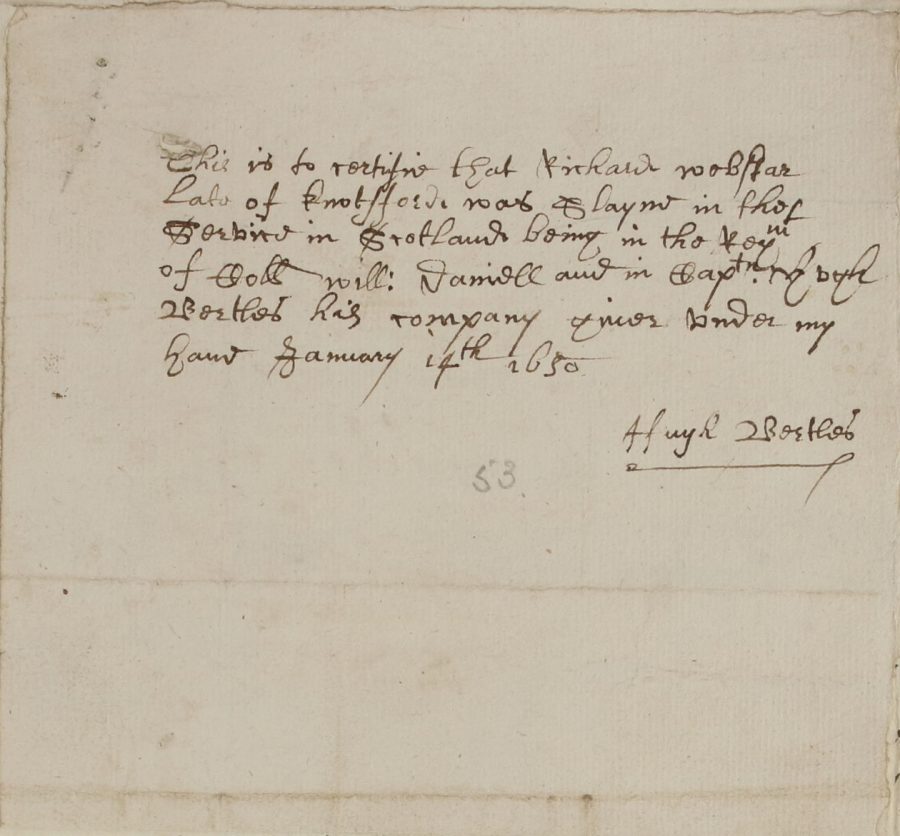 This is to certifie that Richard webstar
late of knotsford was Slayne in thes
Service in Scotland being in the Regm
of Coll will: Daniell and in Captn: Hugh
Bertles his company given under my
hand January 14th 1650
Hugh Bertles
53